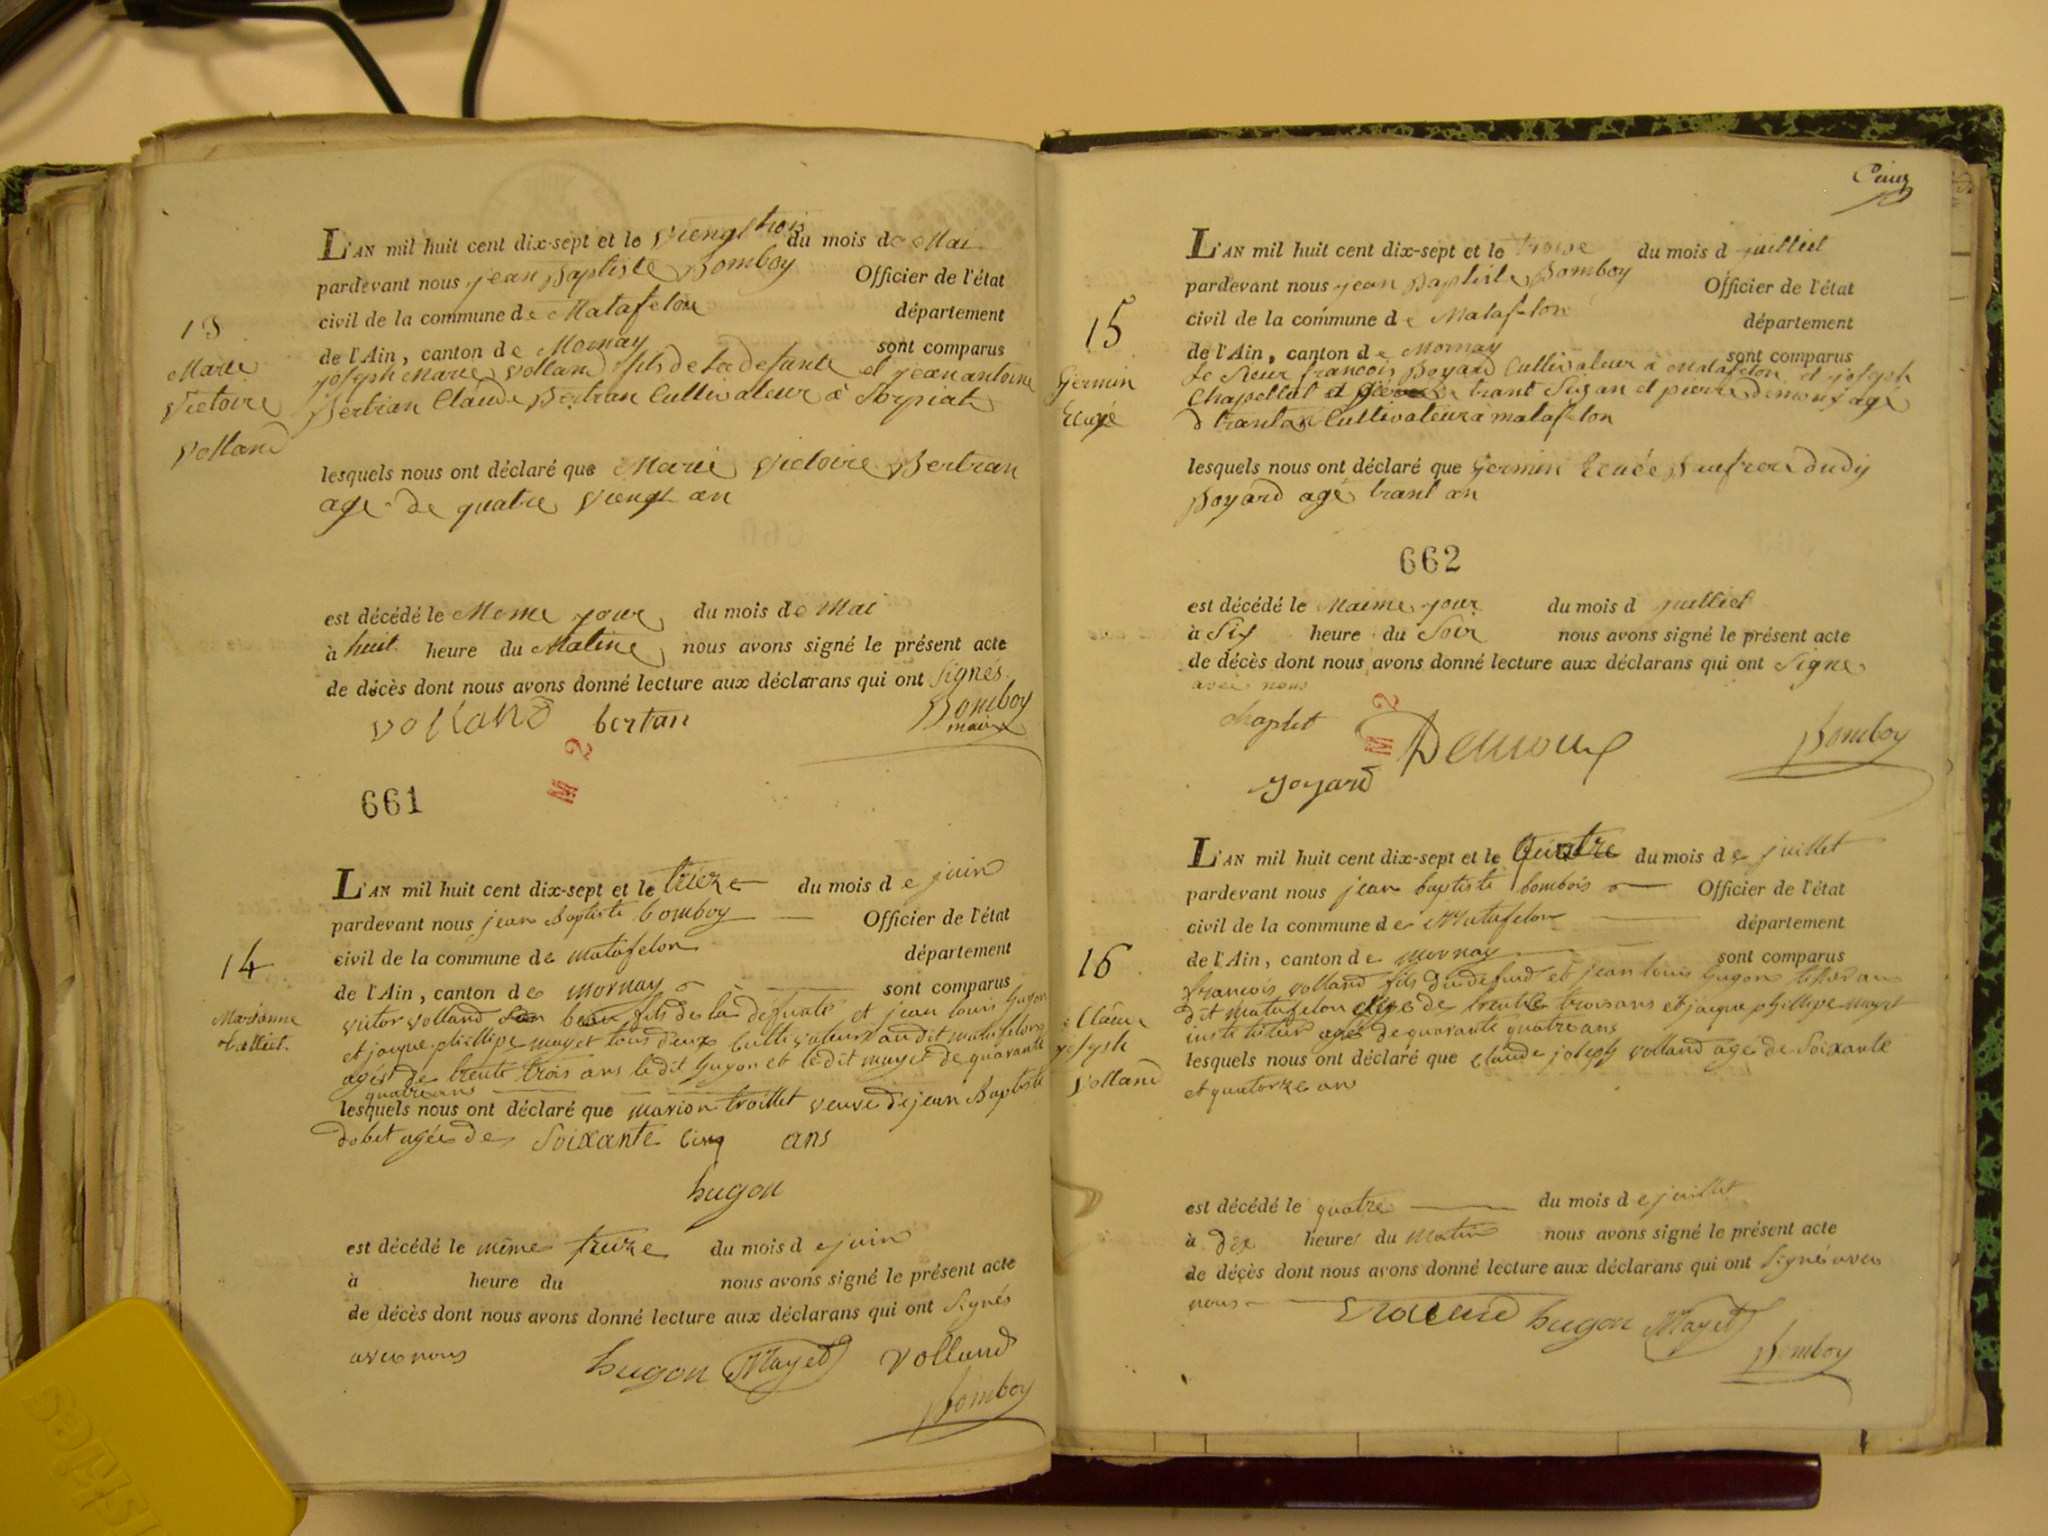 L'AN mil huit cent dix-sept et le viengt trois du mois de Mai
pardevant nous jean Baptiste Bomboy Officier de l'état
civil de la commune de Matafelon département
de l'Ain, canton de Mornay sont comparus
joseph Marie Volland fils de la defante et jean antoine
Bertran Claude Bertran Cultivateur à Sorpiat
13
Marie
Victoire
Volland
lesquels nous ont déclaré que Marie Victoire Bertran
age de quatre viengt an
est décédé le Meme jour du mois de Mai
à huit heure du Matine nous avons signé le présent acte
de décès dont nous avons donné lecture aux déclarans qui ont Signés
volland bertan Bomboy
maire
M 2
661
L'AN mil huit cent dix-sept et le treize du mois de juin
pardevant nous jean Baptiste bomboy Officier de l'état
civil de la commune de matafelon département
de l'Ain, canton de mornay sont comparus
victor volland beau fils de la défunte et jean louis hugon
et jacque phillipe mayet tous deux cultivateurs audit matafelon
agés de trente trois ans ledit hugon et ledit mayet de quarante
quatre ans
14
Marianne
lesquels nous ont déclaré que marion troillet veuve de jean Baptiste
dobet agée de Soixante Cinq ans
hugon
est décédé le même treize du mois de juin
à heure du nous avons signé le présent acte
de décès dont nous avons donné lecture aux déclarans qui ont Signés
avec nous hugon Mayet volland
Bomboy
Cinq
L'AN mil huit cent dix-sept et le troise du mois d juilliet
pardevant nous jean Baptiste Bomboy Officier de l'état
civil de la commune de Matafelon département
de l'Ain, canton de Mornay sont comparus
le Sieur francois Boyard Cultivateur à Matafelon et joseph
Chapellut trant Sisan et pierre demoux agé
d trantan Cultivateur à matafelon
15
Germin
lesquels nous ont déclaré que Germin dudy
Boyard agé trant an
662
est décédé le maime jour du mois d juilliet
à Six heure du Soir nous avons signé le présent acte
de décès dont nous avons donné lecture aux déclarans qui ont Signe
avec nous
chaplut Demoux Bomboy
M 2
Boyard
L'AN mil huit cent dix-sept et le Quatre du mois de juillet
pardevant nous jean baptiste bombois Officier de l'état
civil de la commune de Matafelon département
de l'Ain, canton de mornay sont comparus
francois volland fils du defund et jean louis hugon
dit matafelon age de trente trois ans et jacque phillipe mayet
instituteur agé de quarante quatre ans
16
Claude
joseph
Volland
lesquels nous ont déclaré que claude joseph volland age de Soixante
et quatorze an
est décédé le quatre du mois de juillet
à dix heures du Matin nous avons signé le présent acte
de décès dont nous avons donné lecture aux déclarans qui ont Signés avec
nous hugon Mayet
Bomboy